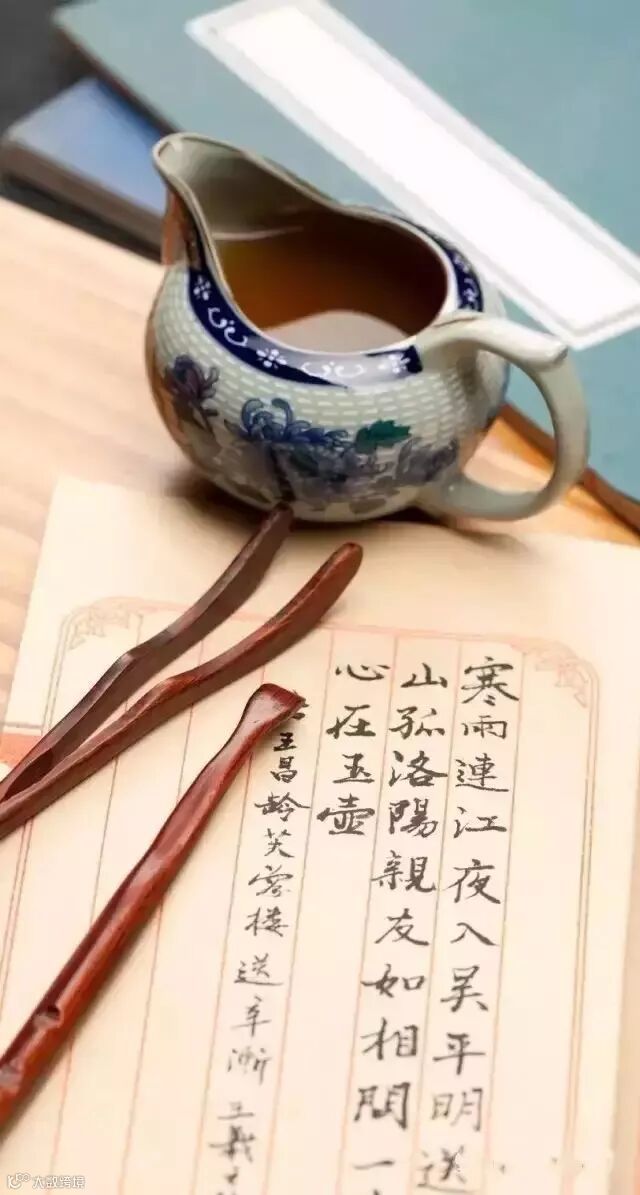 寒雨連江夜入吳平明送
山孤洛陽親友如相問一
心在玉壺
王昌龄芙蓉楼送辛渐
大数跨境